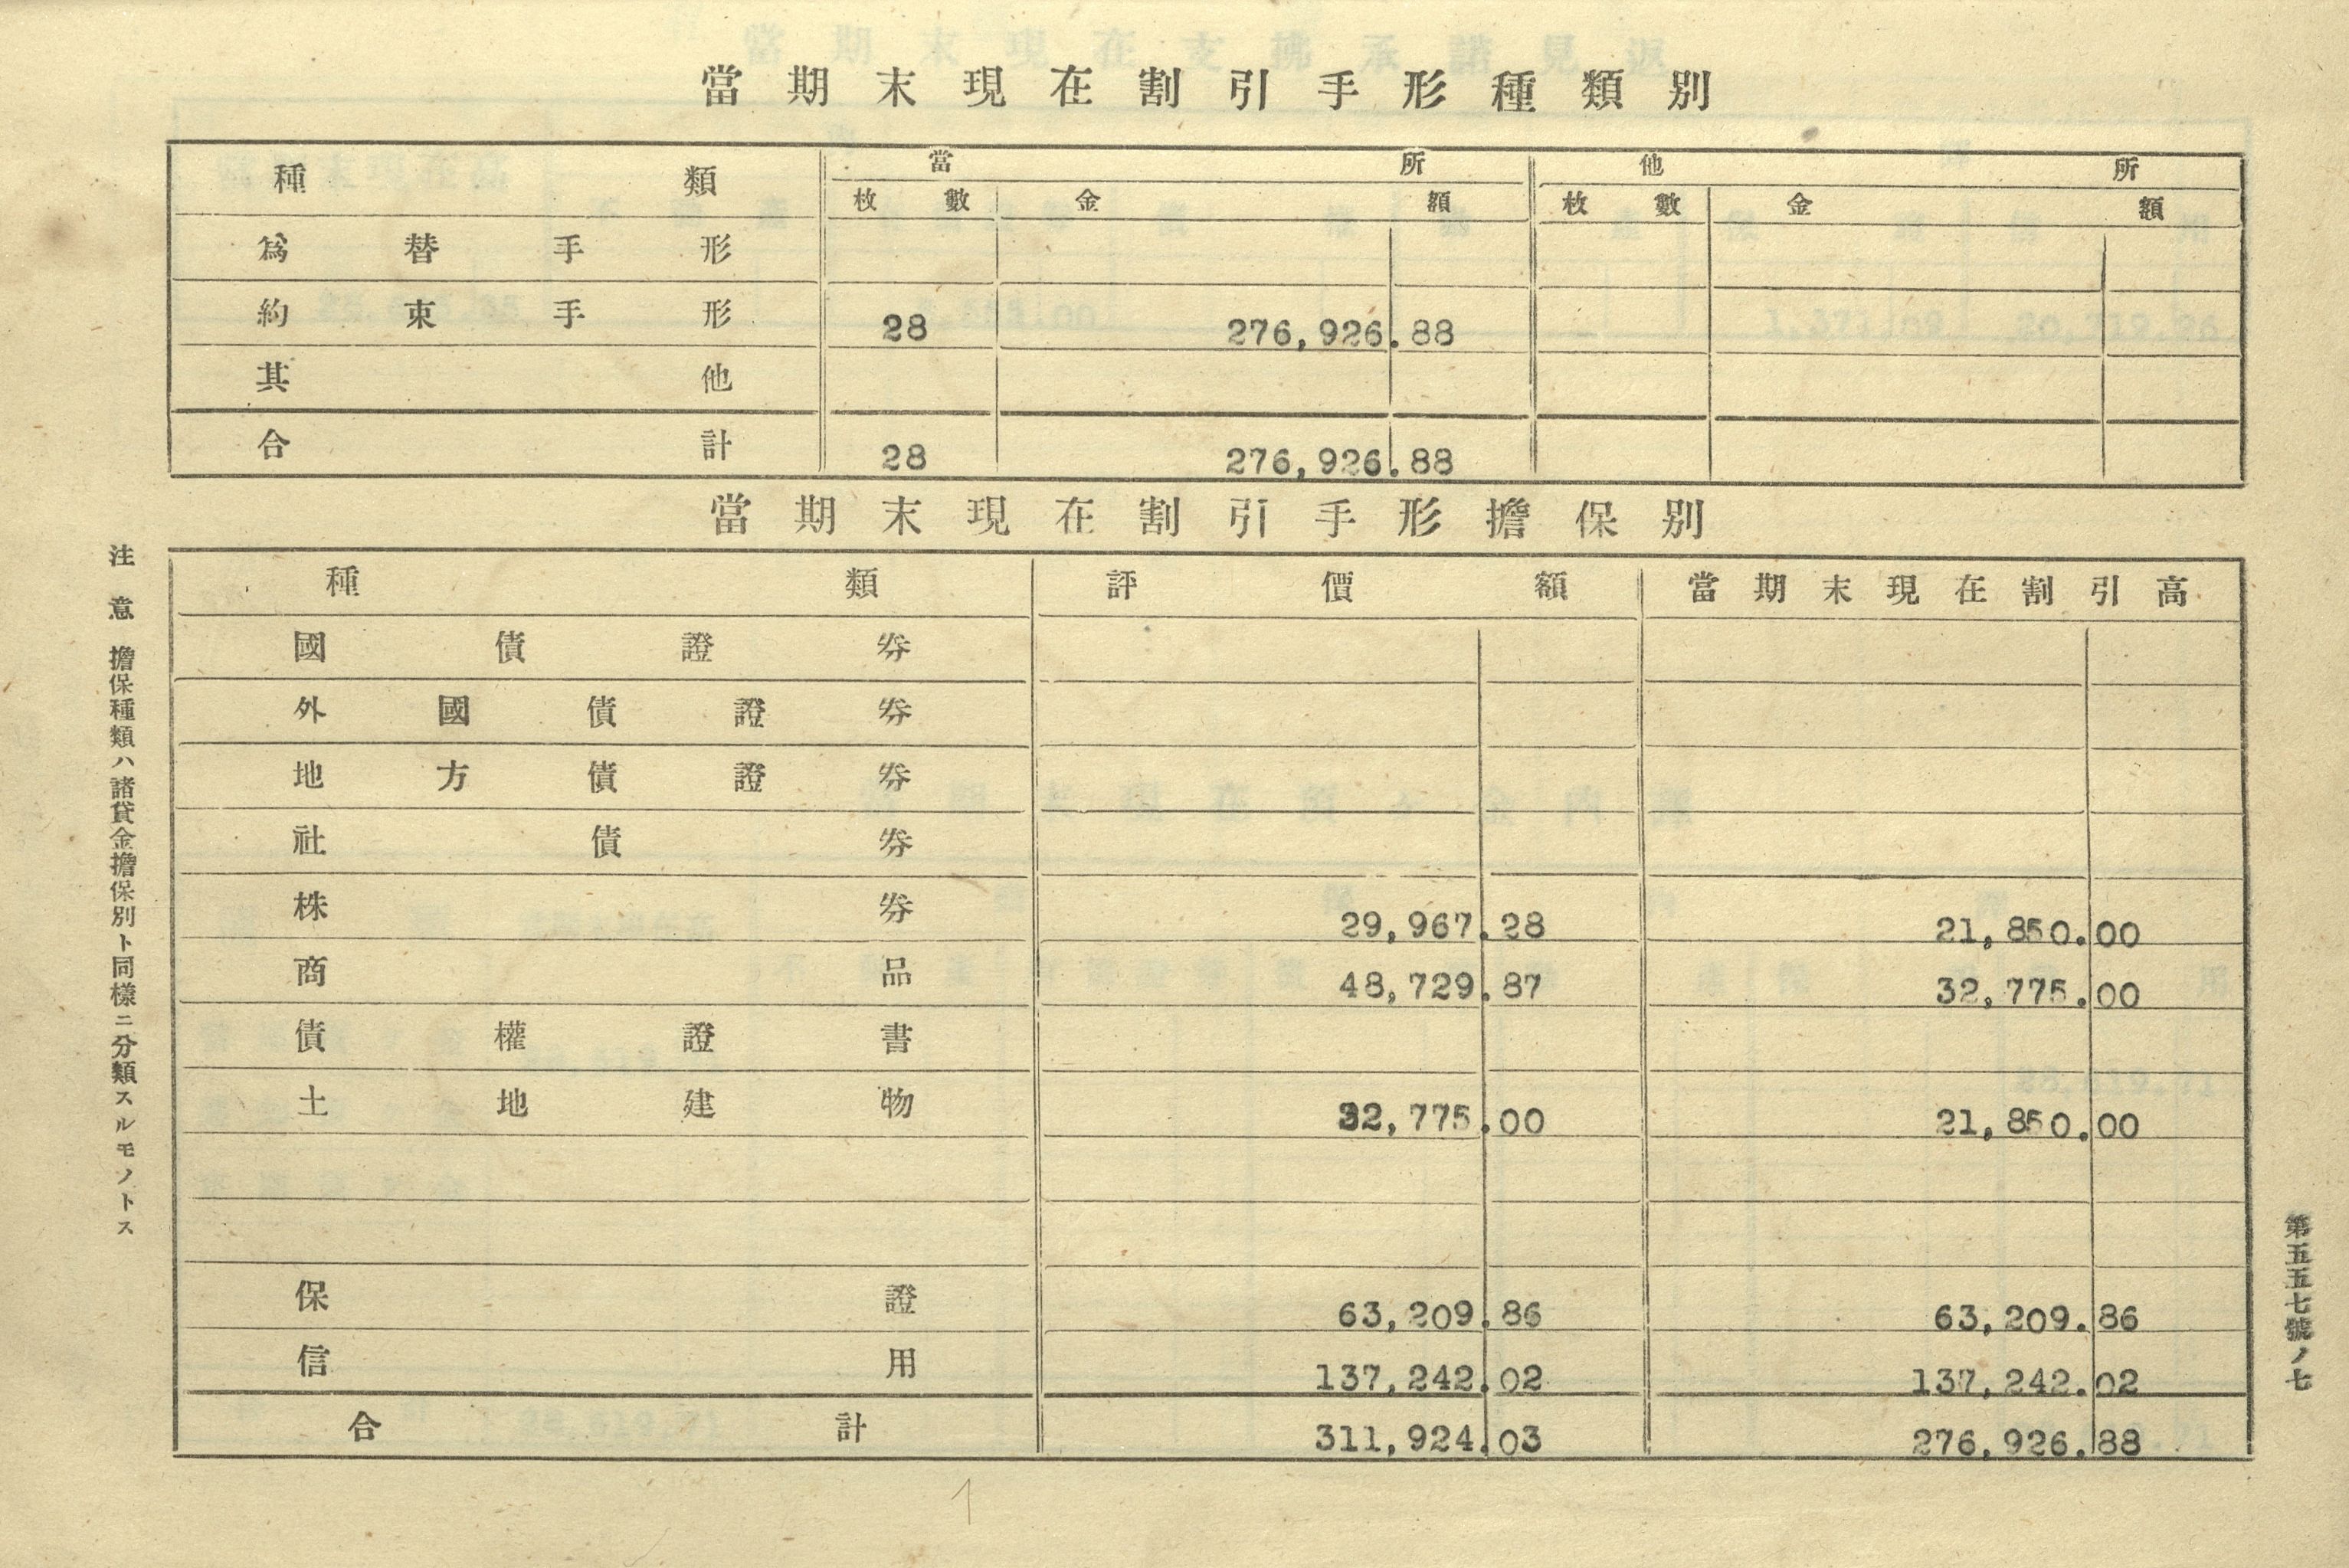 當期末現在割引手形種類別
種類 當所 他所
枚數 金額 枚數 金額
爲替手形
約束手形 28 276,926.88
其他
合計 28 276,926.88
當期末現在割引手形擔保別
種類 評價額 當期末現在割引高
國債證券
外國債證券
地方債證券
社債券
株券 29,967.28 21,850.00
商品 48,729.87 32,775.00
債權證書
土地建物 32,775.00 21,850.00
保證 63,209.86 63,209.86
信用 137,242.02 137,242.02
合計 311,924.03 276,926.88
注意 擔保種類ハ諸貸金擔保別ト同樣ニ分類スルモノトス
第五五七號ノ七